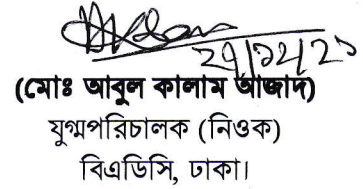 ২৭/১২/২১
(মোঃ আবুল কালাম আজাদ)
যুগ্মপরিচালক (নিওক)
বিএডিসি, ঢাকা।